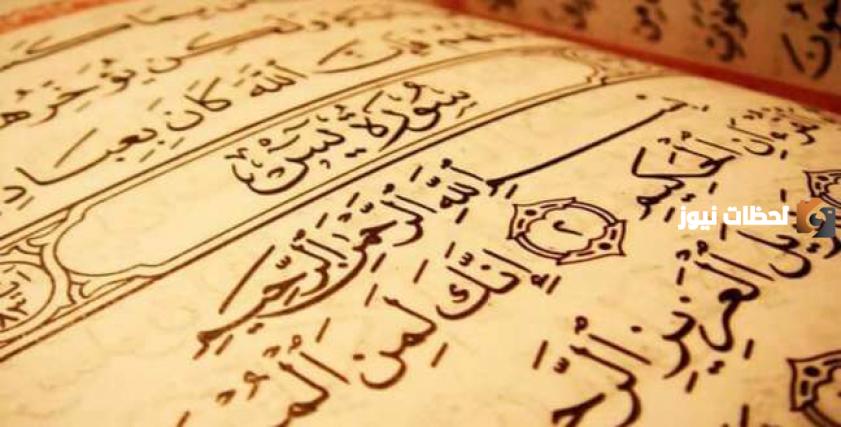 لَٰكِن يُؤَخِّرُهُ
فَإِنَّ ٱللَّهَ كَانَ بِعِبَادِ
سُورَةُ يسٓ
بِسْمِ ٱللَّهِ ٱلرَّحْمَٰنِ ٱلرَّحِيمِ
ٱلْحَكِيمِ ٢ إِنَّكَ لَمِنَ ٱلْمُ
يلَ ٱلْعَزِيزِ ٱلرَّحِ
لحظات نيوز